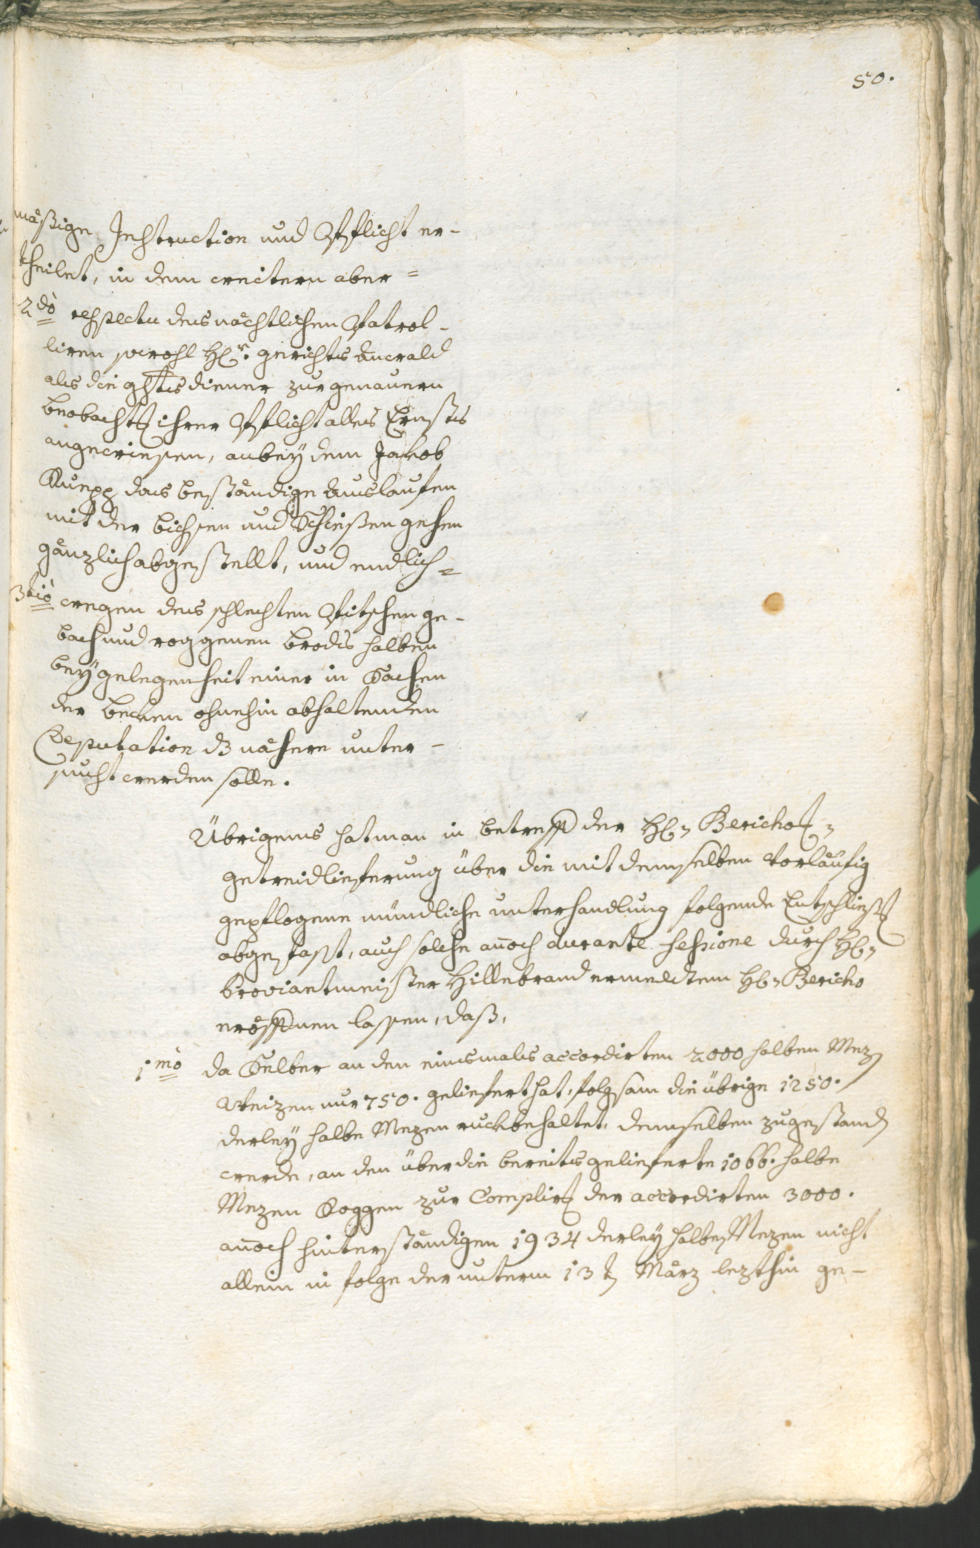 50.
mäßige Instruction und Pflicht er-
theilet, in dem weitern aber=
2dò respectu des nächtlichen Patrol-
liren sowohl H: Gerichts Anwald
als die ghts diener zur genauern
beobacht: ihrer Pflicht alles Ernstes
angewiesen, anbey dem Jakob
Kuepp das beständige Auslaufen
mit der bichsen und Schießen gehen
gänzlich abgestellt, und endlich=
3tiò wegen des schlechten Pitschen ge-
bach und roggenen brods halben
bey gelegenheit einer in Sachen
der becken ohnehin abhaltenden
Deputation ds nähere unter-
sucht werden solle.
Übrigens hat man in betreff der H: Bericho:
getreidlieferung über die mit demselben vorläufig
gepflogene mündliche unterhandlung folgende Entschließ:
abgefasst, auch solche anoch durante sessione durch H:
Proviantmeister Hillebrand ermeldtem H: Bericho
eröffnen lassen, daß,
1mò da Selber an den einsmals accordirten 2000 halben Mez:
Weizen nur 750. geliefert hat, folgsam die übrige 1250.
derley halbe Mezen ruckbehaltet, demselben zugestanden
werde, an den über die bereits gelieferte 1066. halbe
Mezen Roggen zur Complir: der accordirten 3000.
anoch hinterständigen 1934 derley halbe Mezen nicht
allein in folge der unterm 13t: März lezthin ge-